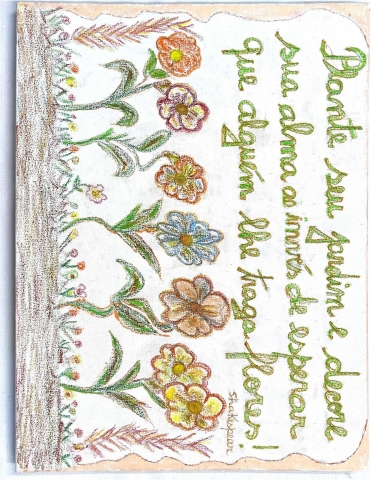 Plante seu jardim e decore
sua alma ao invés de esperar
que alguém lhe traga flores!
Shakspear